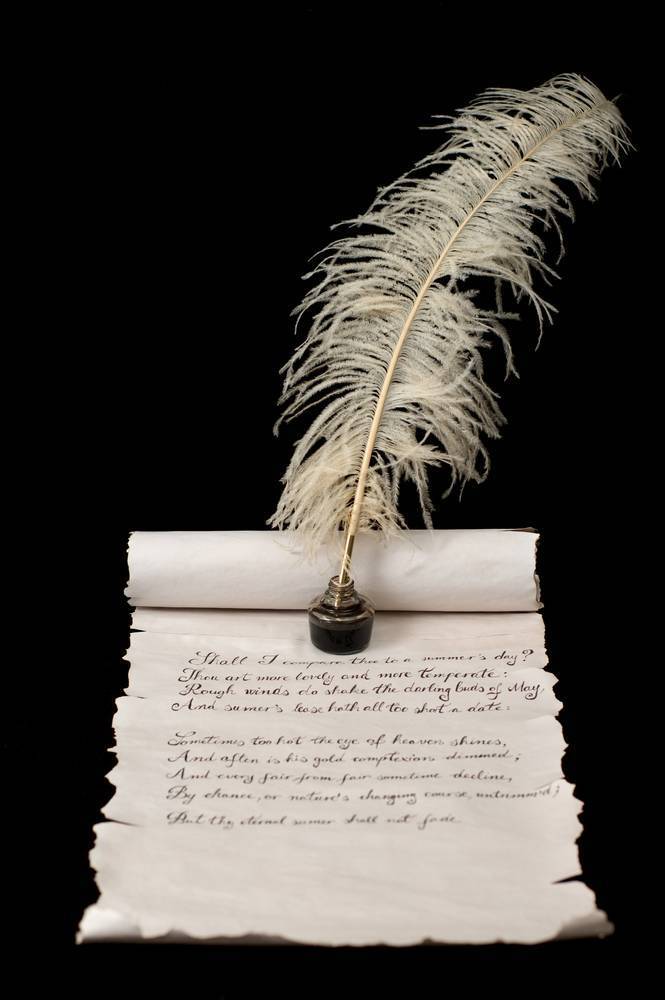 Shall I compare thee to a summer's day?
Thou art more lovely and more temperate:
Rough winds do shake the darling buds of May,
And sumer's lease hath all too short a date:
Sometimes too hot the eye of heaven shines,
And often is his gold complexion dimmed;
And every fair from fair sometime decline,
By chance, or nature's changing course, untrimm'd;
But thy eternal sumer shall not fade